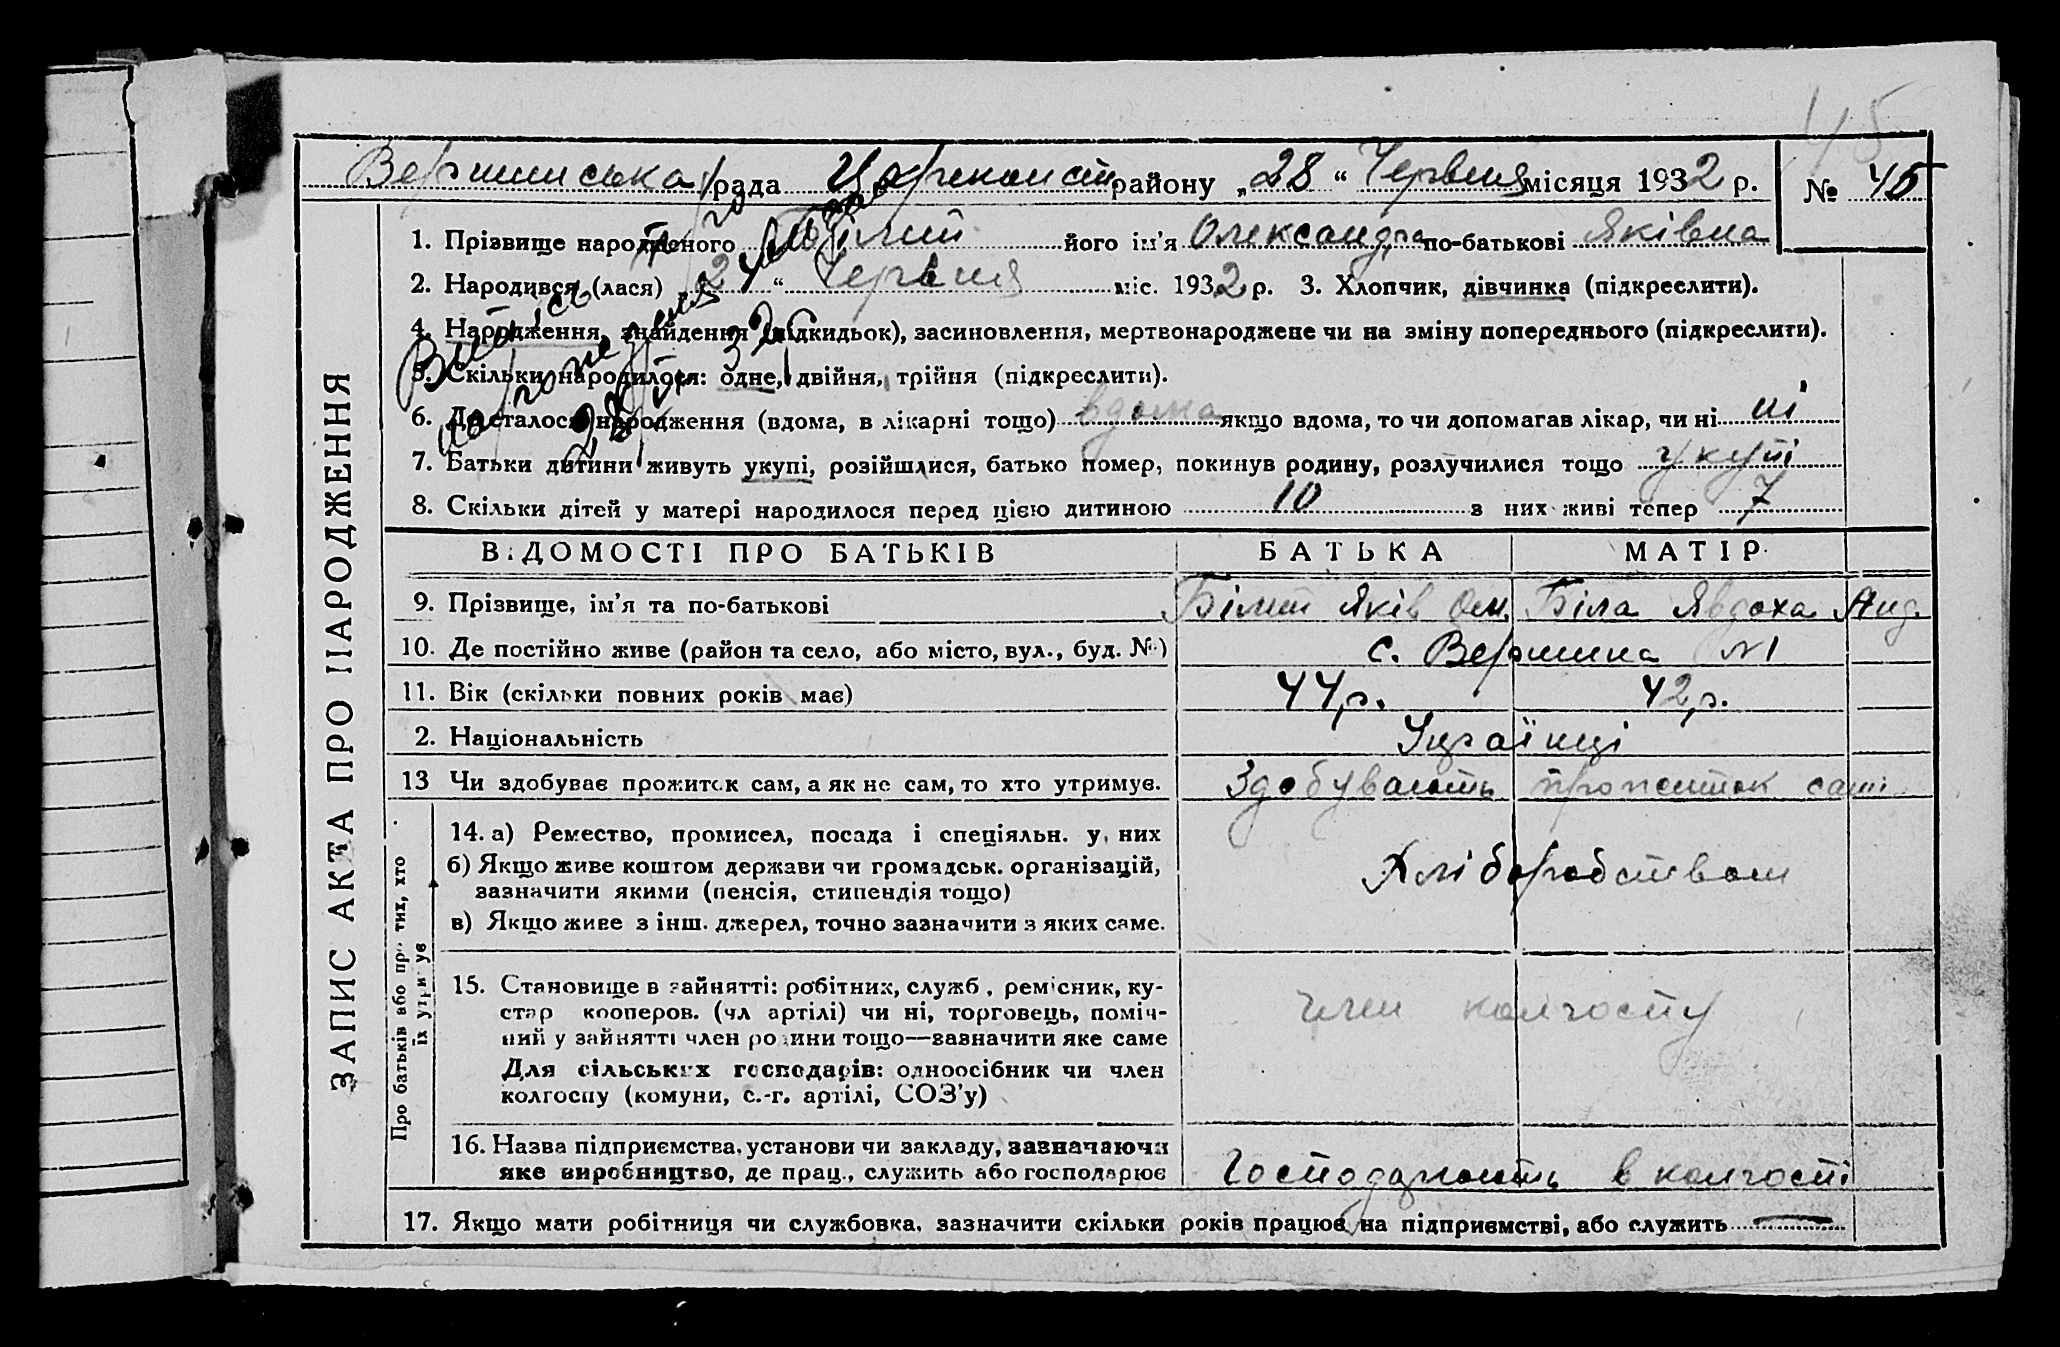 45
Вершинська с/рада Царeконст району „28“ Червня місяця 1932 р. № 45
1. Прізвище народженого Білий його ім’я Олександра по-батькові Яківна
2. Народився (лася) 2 “ Червня міс. 1932 р. 3. Хлопчик, дівчинка (підкреслити).
4. Народження, знайдення (підкидьок), засиновлення, мертвонароджене чи на зміну попереднього (підкреслити).
5. Скільки народилося: одне, двійня, трійня (підкреслити).
6. Де сталося народження (вдома, в лікарні тощо) вдома якщо вдома, то чи допомагав лікар, чи ні ні
7. Батьки дитини живуть укупі, розійшлися, батько помер, покинув родину, розлучилися тощо укупі
8. Скільки дітей у матері народилося перед цією дитиною 10 з них живі тепер 7
ВІДОМОСТІ ПРО БАТЬКІВ БАТЬКА МАТІР
9. Прізвище, ім’я та по-батькові Білий Яків Ом. Біла Явдоха Анд.
10. Де постійно живе (район та село, або місто, вул., буд. №) с. Вершина №1
11. Вік (скільки повних років має) 44 р. 42 р.
2. Національність Українці
13 Чи здобуває прожиток сам, а як не сам, то хто утримує. Здобувають прожиток самі
14. а) Ремество, промисел, посада і спеціяльн. у них
б) Якщо живе коштом держави чи громадськ. організацій,
зазначити якими (пенсія, стипендія тощо) Хліборобством
в) Якщо живе з інш. джерел, точно зазначити з яких саме.
15. Становище в зайнятті: робітник, служб., ремісник, ку-
стар кооперов. (чл артілі) чи ні, торговець, поміч- член колгоспу
ний у зайнятті член родини тощо—зазначити яке саме
Для сільських господарів: одноосібник чи член
колгоспу (комуни, с.-г. артілі, СОЗ’у)
16. Назва підприємства, установи чи закладу, зазначаючи
яке виробництво, де прац., служить або господарює Господарюють в колгоспі
17. Якщо мати робітниця чи службовка, зазначити скільки років працює на підприємстві, або служить —
ЗАПИС АКТА ПРО НАРОДЖЕННЯ
Про батьків або про тих, хто
їх утримує